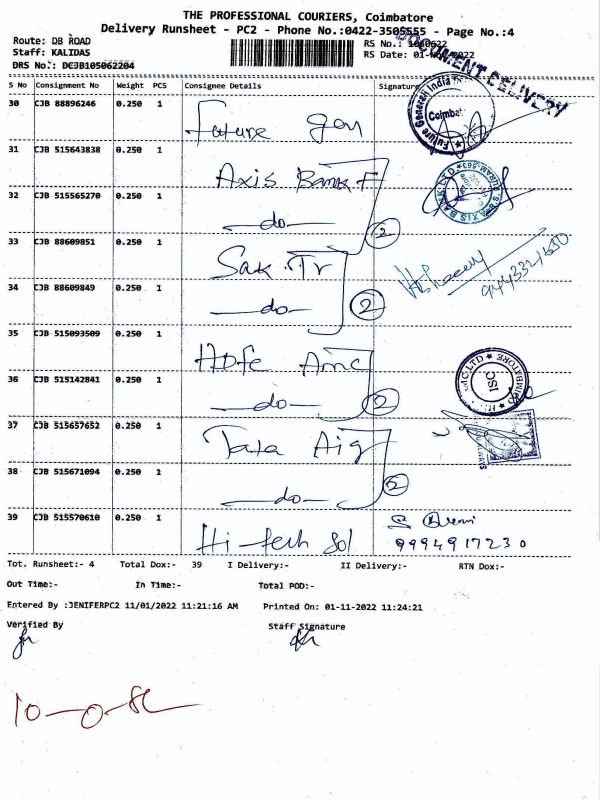 THE PROFESSIONAL COURIERS, Coimbatore
Delivery Runsheet - PC2 - Phone No.:0422-3505555 - Page No.:4
Route: DB ROAD
Staff: KALIDAS
DRS No.: DCJB105062204
RS No.:
RS Date: 01-
DOCUMENT DELIVERY
S No Consignment No Weight PCS Consignee Details Signature
30 CJB 88896246 0.250 1 Future gen
Future Generali India Coimbat
31 CJB 515643838 0.250 1 Axis Bank F
AXIS BANK LTD
32 CJB 515565270 0.250 1 do 2
33 CJB 88609851 0.250 1 Sak Tr
34 CJB 88609849 0.250 1 do 2
35 CJB 515093509 0.250 1 Hdfc Amc
ISC
36 CJB 515142841 0.250 1 do 2
37 CJB 515657652 0.250 1 Tata Aig
38 CJB 515671094 0.250 1 do 2
39 CJB 515570610 0.250 1 Hi-tech Sol
9994917230
Tot. Runsheet:- 4 Total Dox:- 39 I Delivery:- II Delivery:- RTN Dox:-
Out Time:- In Time:- Total POD:-
Entered By :JENIFERPC2 11/01/2022 11:21:16 AM Printed On: 01-11-2022 11:24:21
Verified By Staff Signature